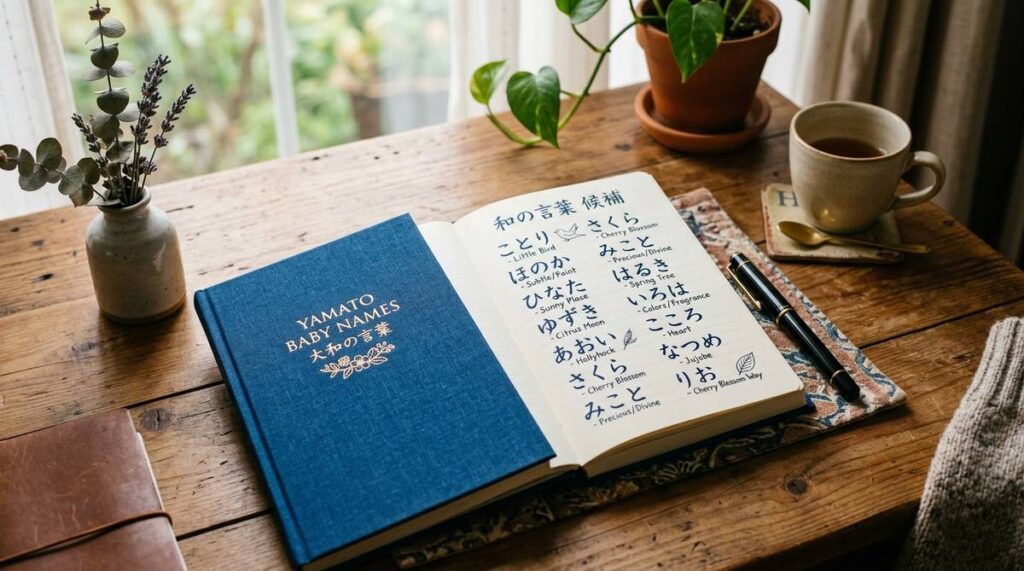 YAMATO
BABY NAMES
大和の言葉
和の言葉 候補
ことり
- Little Bird
ほのか
- Subtle/Faint
ひなた
- Sunny Place
ゆずき
- Citrus Moon
あおい
- Hollyhock
さくら
- Cherry Blossom
みこと
- Precious/Divine
さくら
- Cherry Blossom
みこと
- Precious/Divine
はるき
- Spring Tree
いろは
- Colors/Fragrance
こころ
- Heart
なつめ
- Jujobe
りお
- Cherry Blossom Way
H